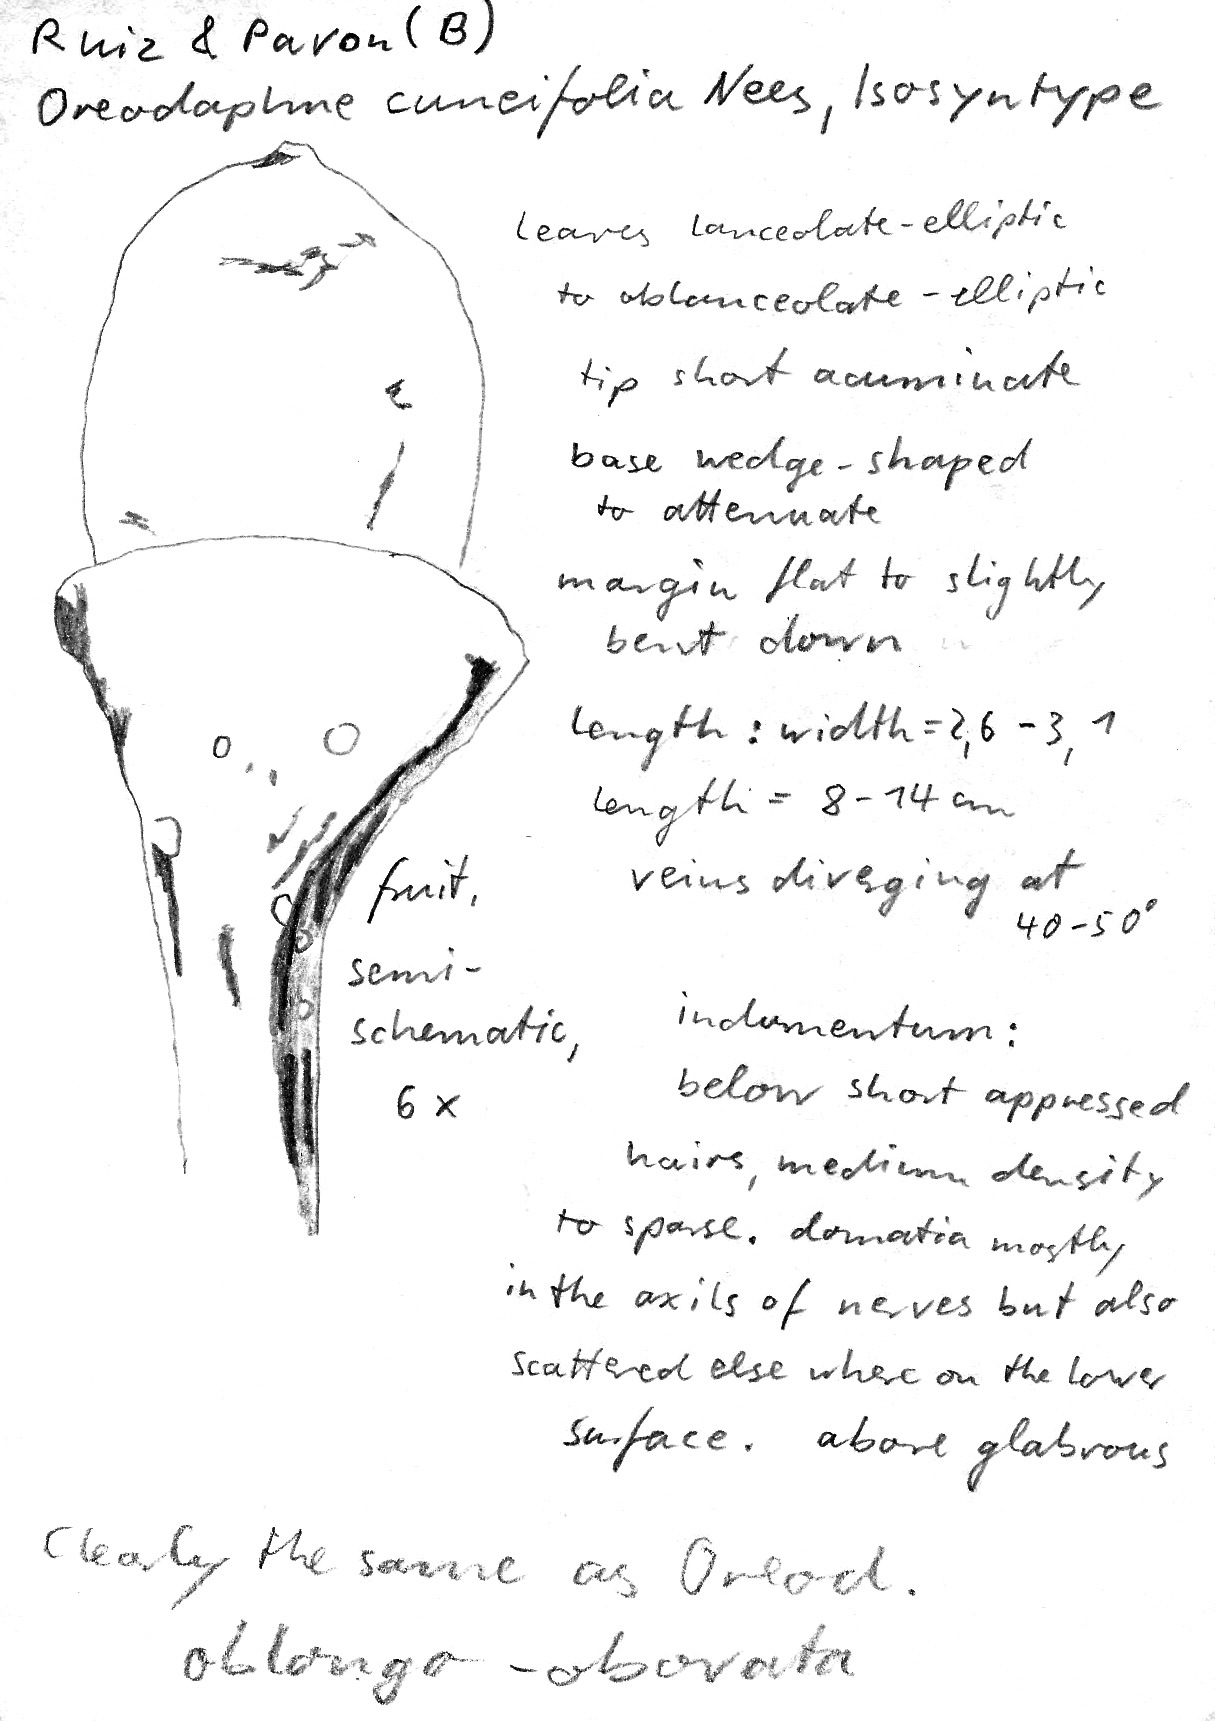 Ruiz & Pavon (B)
Oreodaphne cuneifolia Nees, Isosyntype
leaves lanceolate-elliptic
to oblanceolate-elliptic
tip short acuminate
base wedge-shaped
to attenuate
margin flat to slightly
bent down
length : width = 2,6 - 3,1
length = 8-14 cm
veins diverging at
40-50°
fruit,
semi-
schematic,
6 x
indumentum:
below short appressed
hairs, medium density
to sparse. domatia mostly
in the axils of nerves but also
scattered else where on the lower
surface. above glabrous
Clearly the same as Oreod.
oblongo-obovata